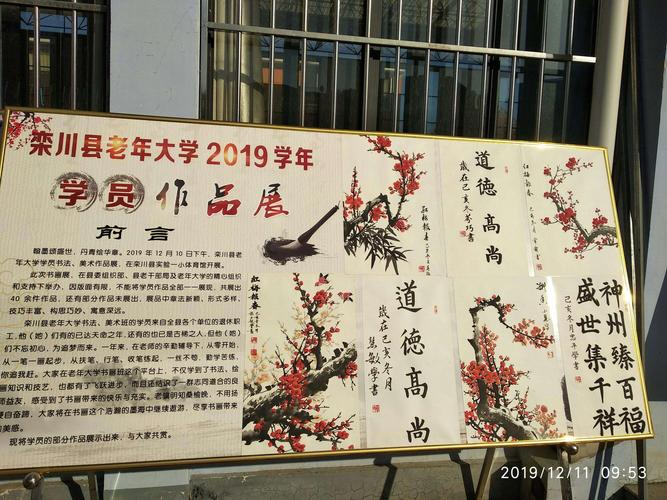 栾川县老年大学2019学年
学员作品展
前言
翰墨颂盛世，丹青绘华章。2019年12月10日下午，栾川县老
年大学学员书法、美术作品展，在栾川县实验一小体育馆开展。
此次书画展，在县委组织部、县老干部局及老年大学的精心组织
和支持下举办，因版面有限，不能将学员作品全部一一展现，共展出
40余件作品，还有部分作品未展出，展品中章法新颖，形式多样，
技巧丰富、构思巧妙、寓意深远。
栾川县老年大学书法、美术班的学员来自全县各个单位的退休职
工，他（她）们有的已达天命之年，还有的也已是古稀之人，但他（她）
们不忘初心，为追梦而来。一年来，在老师的辛勤辅导下，从零开始，
从一笔一画起步，从扶笔、行笔、收笔练起，一丝不苟，勤学苦练，
你追我赶。大家在老年大学书画班这个平台上，不仅学到了书法、绘
画知识和技艺，也都有了飞跃进步，而且还结识了一群志同道合的良
师益友，感受到了书画带来的快乐与充实。老骥明知桑榆晚，不用扬
鞭自奋蹄，大家将在书画这个浩瀚的墨海中继续遨游，尽享书画带来
的美感。
现将学员的部分作品展示出来，与大家共赏。
道德高尚
岁在己亥冬
红梅报春
道德高尚
岁在己亥冬月
慧敏学书
神州臻百福
盛世集千祥
己亥冬月
2019/12/11 09:53